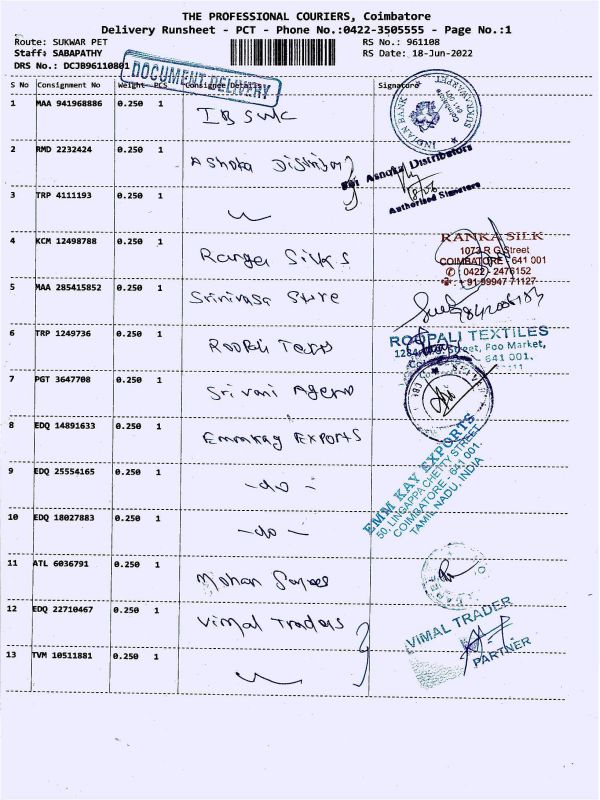 THE PROFESSIONAL COURIERS, Coimbatore
Delivery Runsheet - PCT - Phone No.:0422-3505555 - Page No.:1
Route: SUKWAR PET RS No.: 961108
Staff: SABAPATHY RS Date: 18-Jun-2022
DRS No.: DCJB961108001
DOCUMENT DELIVERY
S No Consignment No Weight PCS Consignee Details Signature
1 MAA 941968886 0.250 1
INDIAN BANK
2 RMD 2232424 0.250 1 Ashoka
Ashoka Distributors
Authorised Signatore
3 TRP 4111193 0.250 1
4 KCM 12498788 0.250 1 Silks
RANKA SILK
1073 R.G.Street
COIMBATORE - 641 001
0422 - 2476152
+91 99947 77127
5 MAA 285415852 0.250 1 Srinivasa Store
6 TRP 1249736 0.250 1
ROOPALI TEXTILES
Street, Poo Market,
641 001.
7 PGT 3647708 0.250 1 Srivani
8 EDQ 14891633 0.250 1 Emmkay EXPORTS
EMM KAY EXPORTS
50, LINGAPPA CHETTY STREET
COIMBATORE - 641 001.
TAMIL NADU, INDIA
9 EDQ 25554165 0.250 1 -do-
10 EDQ 18027883 0.250 1 -do-
11 ATL 6036791 0.250 1 Mohan
12 EDQ 22710467 0.250 1 Vimal Traders
VIMAL TRADER
PARTNER
13 TVM 10511881 0.250 1